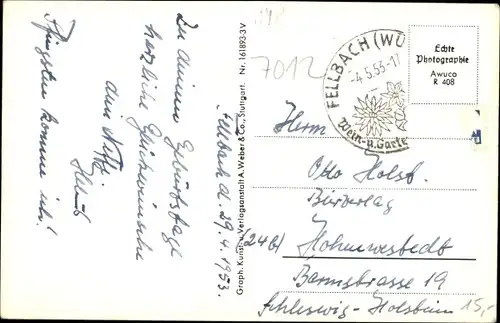 Zu deinem Geburtstage
herzliche Glückwünsche
dein Neffe
Pfingsten komme ich!
Fellbach d. 29.4.1953.
Graph. Kunst- u. Verlagsanstalt A. Weber & Co., Stuttgart. Nr. 161893-3V
7012
FELLBACH (WÜ
-4.5.53.-17
Wein- u. Garte
Echte
Photographie
Awuco
R 408
Herrn
Otto Holst.
(24b) Hohenwestedt
Barmstrasse 19
Schleswig-Holstein
15,-